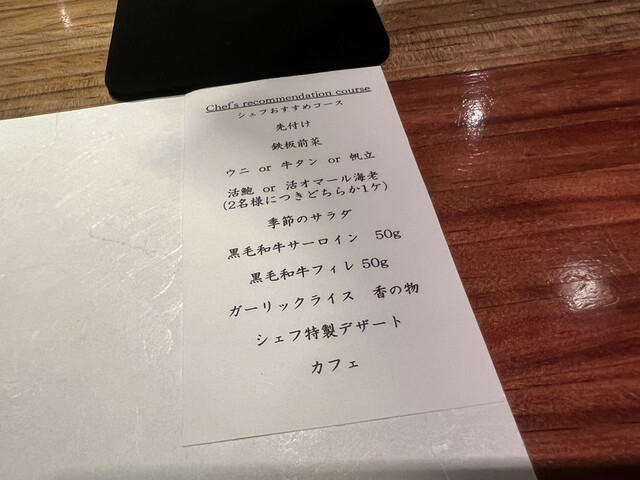 Chef's recommendation course
シェフおすすめコース
先付け
鉄板前菜
ウニ or 牛タン or 帆立
活鮑 or 活オマール海老
(2名様につきどちらか1ケ)
季節のサラダ
黒毛和牛サーロイン 50g
黒毛和牛フィレ 50g
ガーリックライス 香の物
シェフ特製デザート
カフェ